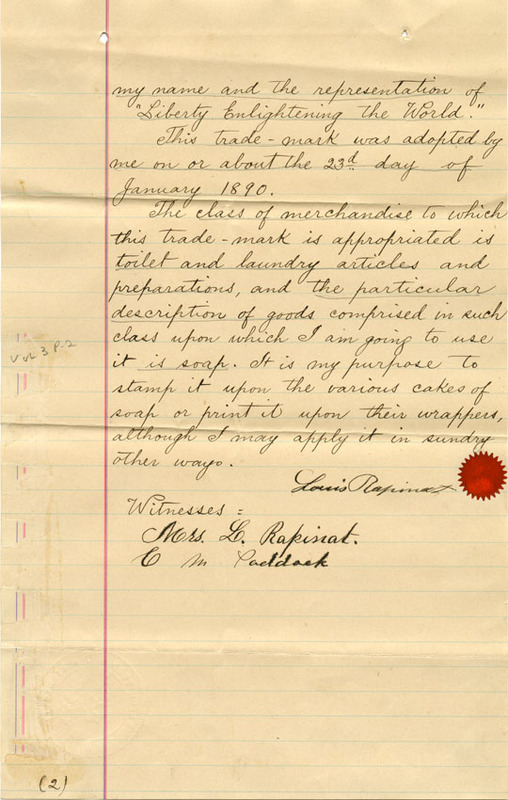 my name and the representation of
"Liberty Enlightening the World."
This trade-mark was adopted by
me on or about the 23d. day of
January 1890.
The class of merchandise to which
this trade-mark is appropriated is
toilet and laundry articles and
preparations, and the particular
description of goods comprised in such
class upon which I am going to use
it is soap. It is my purpose to
stamp it upon the various cakes of
soap or print it upon their wrappers,
although I may apply it in sundry
other ways.
Louis Rapinat
Witnesses =
Mrs. L. Rapinat.
C M Paddock
Vol 3 P. 2
(2)